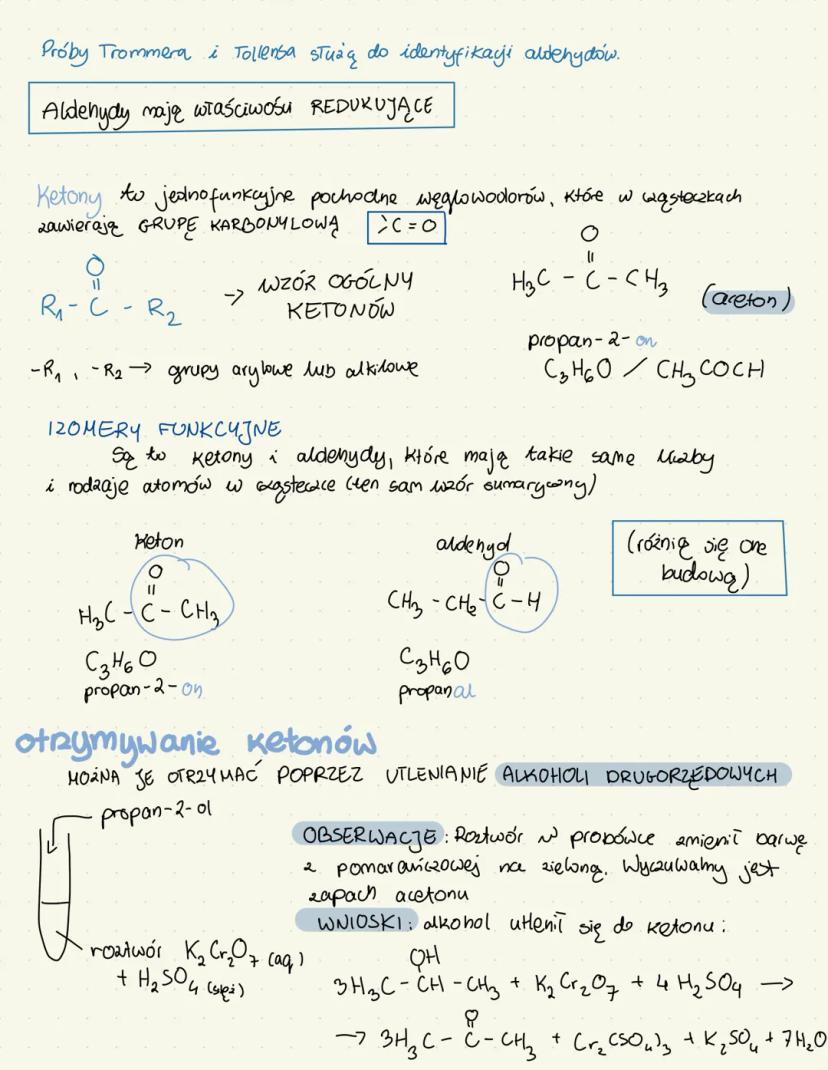 Próby Trommera i Tollensa służą do identyfikacji aldehydów.
Aldehydy mają właściwości REDUKUJĄCE
Ketony to jednofunkcyjne pochodne węglowodorów, które w cząsteczkach
zawierają GRUPĘ KARBONYLOWĄ >C=O
O
||
R₁-C-R₂
→ WZÓR OGÓLNY
KETONÓW
O
||
H₃C - C - CH₃ (aceton)
propan-2-on
-R₁, -R₂ → grupy arylowe lub alkilowe
C₃H₆O / CH₃COCH
IZOMERY FUNKCYJNE
Są to ketony i aldehydy, które mają takie same liczby
i rodzaje atomów w cząsteczce (ten sam wzór sumaryczny)
keton
O
||
H₃C - C - CH₃
C₃H₆O
propan-2-on
aldehyd
O
||
CH₃ - CH₂ - C - H
C₃H₆O
propanal
(różnią się one
budową)
otrzymywanie ketonów
MOŻNA JE OTRZYMAĆ POPRZEZ UTLENIANIE ALKOHOLI DRUGORZĘDOWYCH
propan-2-ol
roztwór K₂Cr₂O₇ (aq)
+ H₂SO₄ (stęż)
OBSERWACJE: Roztwór w probówce zmienił barwę
z pomarańczowej na zieloną. Wyczuwalny jest
zapach acetonu
WNIOSKI: alkohol utlenił się do ketonu:
OH
3H₃C - CH - CH₃ + K₂Cr₂O₇ + 4 H₂SO₄ →
O
||
→ 3H₃C - C - CH₃ + Cr₂(SO₄)₃ + K₂SO₄ + 7H₂O